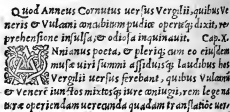 Quod Anneus Cornutus uersus Vergilij, quibus Ve
neris & Vulcani concubitum pudicè operuit, dixit, re
prehensione insulsa, & odiosa inquinauit. Cap. X.
ANnianus poeta, & pleriq; cum eo eiusdem
musæ uiri summis assiduisq; laudibus hos
Vergilij uersus ferebant, quibus Vulcanū
& Venerē iunctos mixtosq; iure coniugij, rem lege na
turæ operiendam uerecunda quadam translatiōe uere